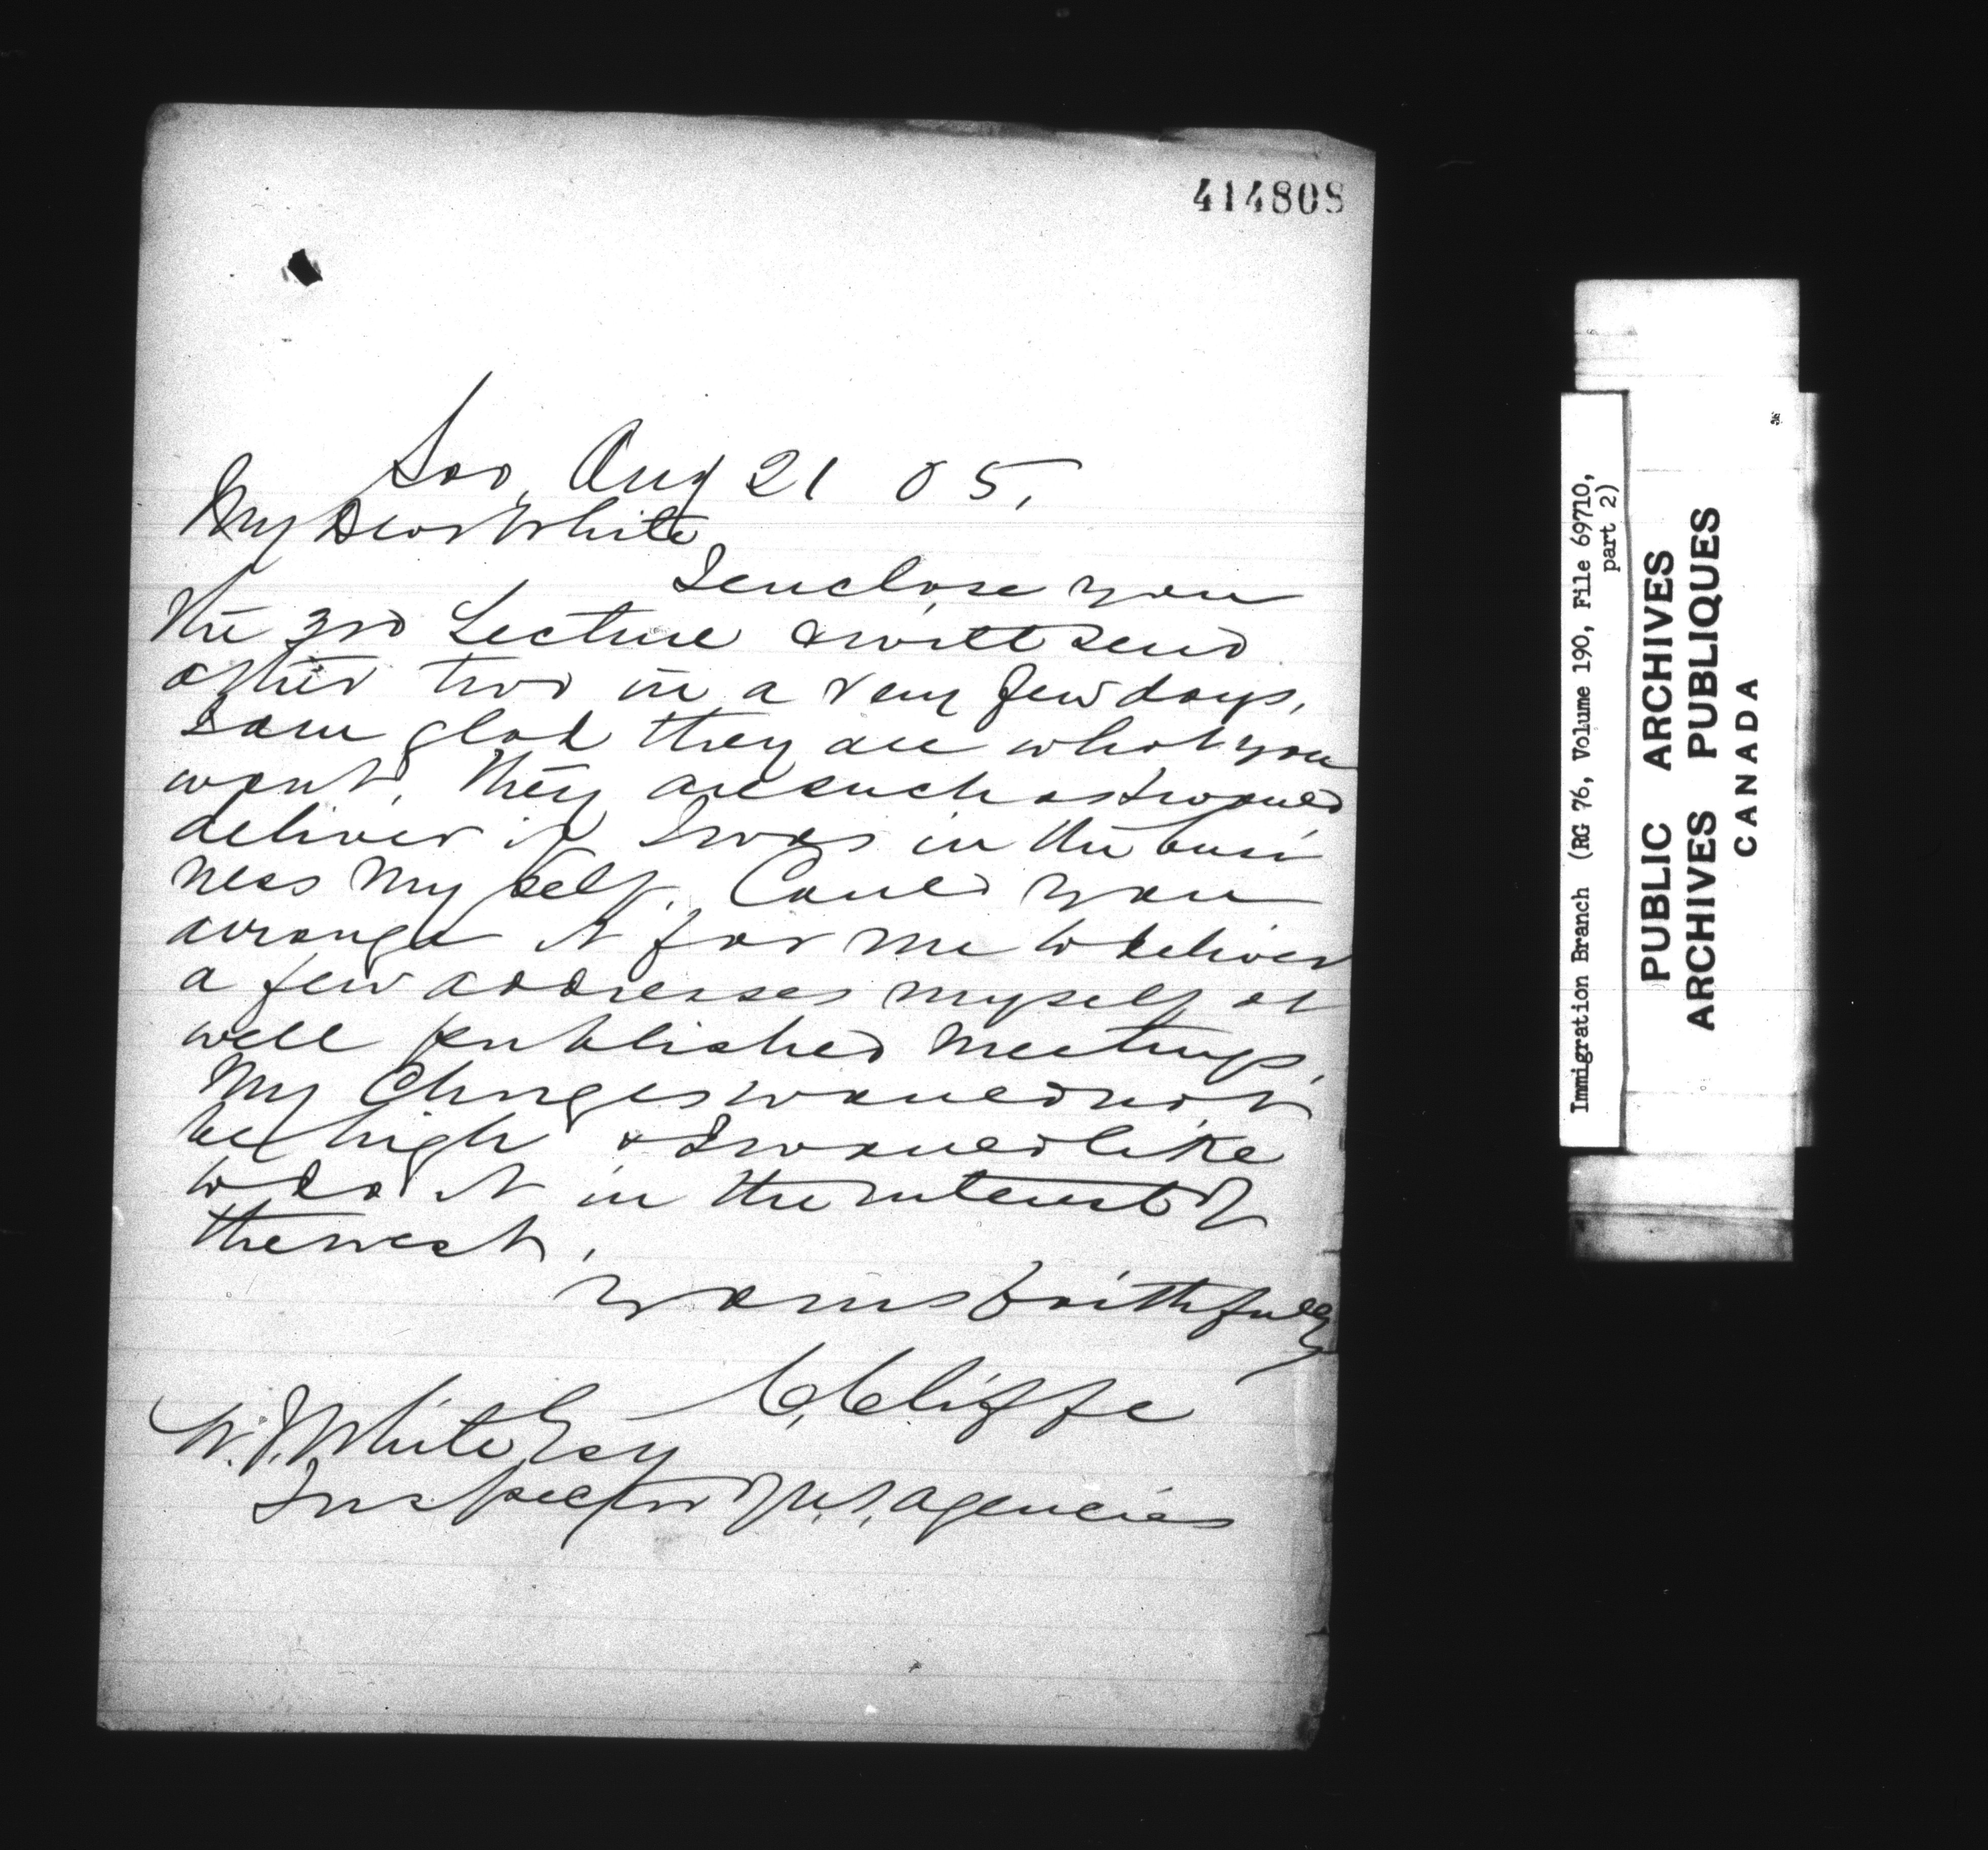 414808
Soo, Aug 21 05.
My Dear White
I enclose you
the 3rd Lecture & will send
other two in a very few days.
I am glad they are what you
want. They are such as I would
deliver if I was in the busi
ness my self. Could you
arrange it for me to deliver
a few addresses myself at
well published meetings.
My Chrges would not
be high & I would like
to do it in the interest of
the west.
Yours faithfully
C. Cliffe
W. J. White Esq
Inspector of U.S. Agencies
Immigration Branch (RG 76, Volume 190, File 69710,
part 2)
PUBLIC ARCHIVES
ARCHIVES PUBLIQUES
CANADA